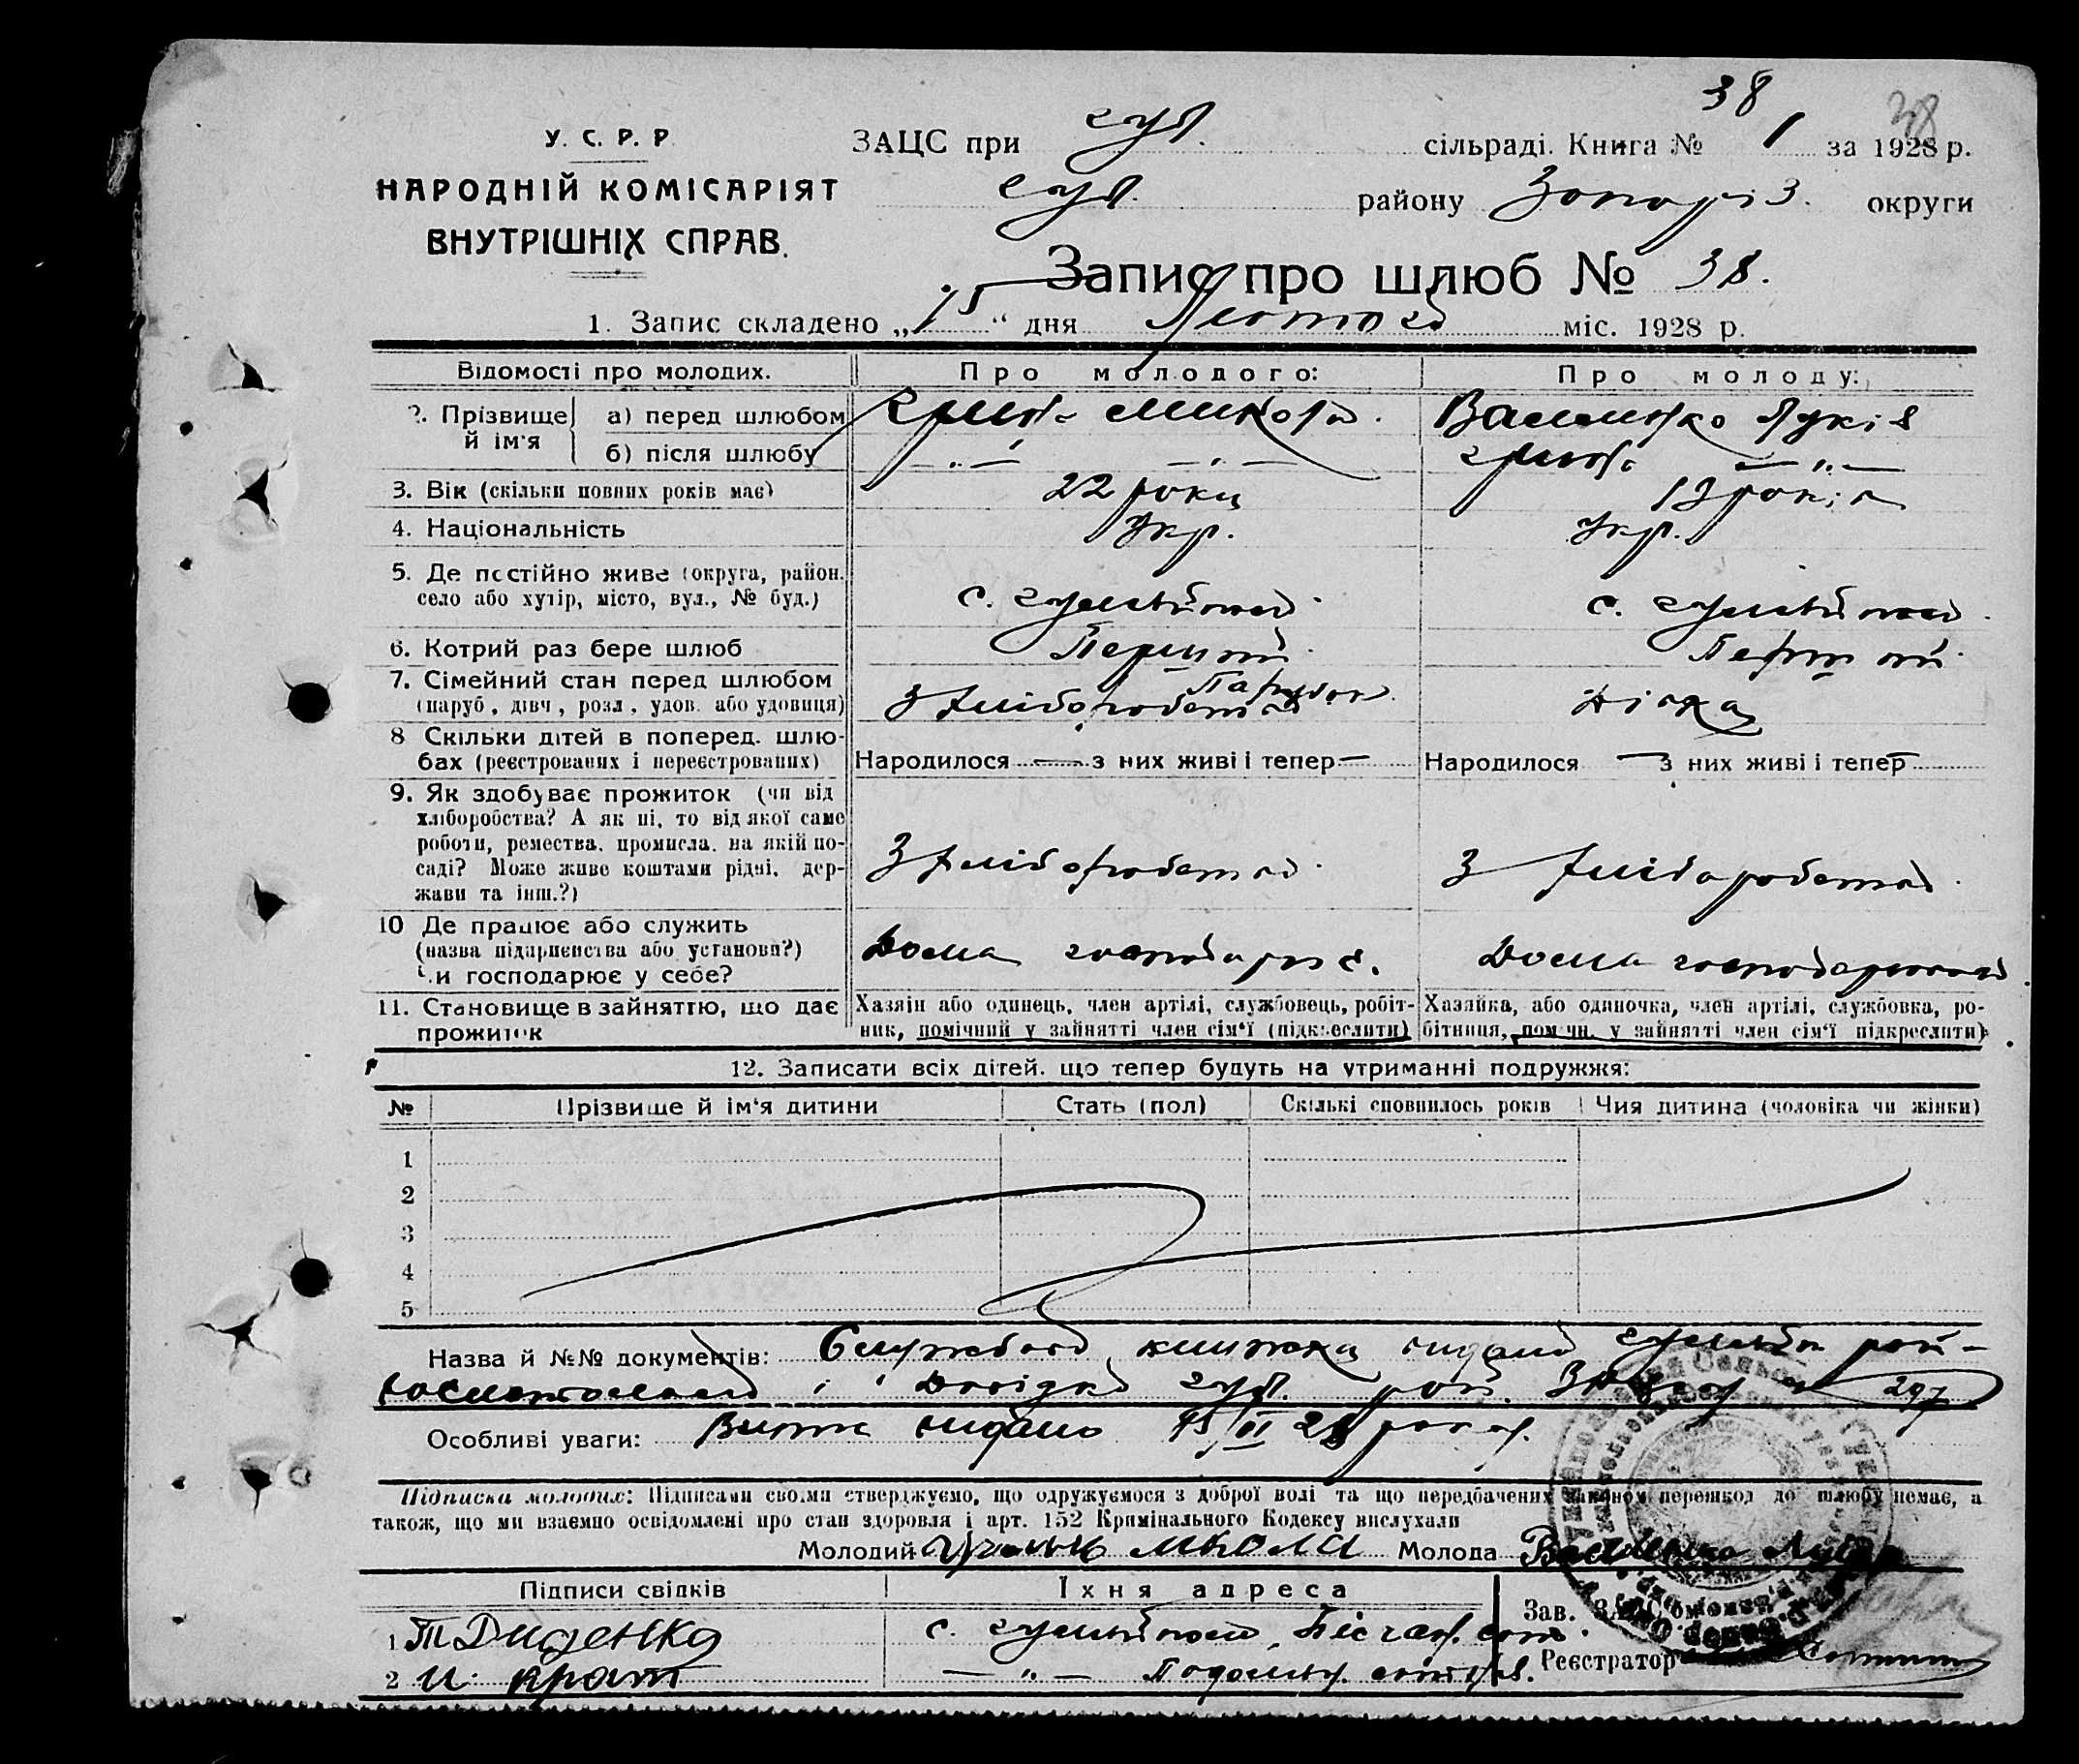 38
38
У. С. Р. Р.
ЗАЦС при Гул. сільраді. Книга № 1 за 1928 р.
НАРОДНІЙ КОМІСАРІЯТ
Гул. району Запоріз. округи
ВНУТРІШНІХ СПРАВ.
Запис про шлюб № 38.
1. Запис складено „15“ дня Лютого міс. 1928 р.
Відомості про молодих. Про молодого: Про молоду:
2. Прізвище й ім'я
а) перед шлюбом Микола Василенко
б) після шлюбу — „ — — „ — — „ —
3. Вік (скільки повних років має) 22 роки років
4. Національність Укр. Укр.
5. Де постійно живе (округа, район,
село або хутір, місто, вул., № буд.) с. Гуляйполе с. Гуляйполе
6. Котрий раз бере шлюб Перший Перший
7. Сімейний стан перед шлюбом
(паруб, дівч, розл, удов. або удовиця) Парубок Дівка
8 Скільки дітей в поперед. шлю-
бах (реєстрованих і нереєстрованих) Народилося — з них живі і тепер — Народилося — з них живі і тепер —
9. Як здобуває прожиток (чи від
хліборобства? А як ні, то від якої саме
роботи, ремества, промисла, на якій по-
саді? Може живе коштами рідні, дер-
жави та інш.?) З хліборобства З хліборобства
10 Де працює або служить
(назва підприємства або установи?)
Чи господарює у себе? Дома господарює. Дома
11. Становище в зайняттю, що дає
прожиток
Хазяїн або одинець, член артілі, службовець, робіт-
ник, помічний у зайнятті член сім'ї (підкреслити)
Хазяйка, або одиночка, член артілі, службовка, ро-
бітниця, помічн. у зайнятті член сім'ї підкреслити)
12. Записати всіх дітей, що тепер будуть на утриманні подружжя:
№ Прізвище й ім'я дитини Стать (пол) Скількі сповнилось років Чия дитина (чоловіка чи жінки)
1
2
3
4
5
Назва й №№ документів: книжка
і Гул. 297
Особливі уваги: Витяг видано 15/II 28 року.
Підписка молодих: Підписами своїми стверджуємо, що одружуємося з доброї волі та що передбачених законом перешкод до шлюбу немає, а
також, що ми взаємно освідомлені про стан здоровля і арт. 152 Кримінального Кодексу вислухали
Молодий Микола Молода Василенко
Підписи свідків Їхня адреса
Зав. ЗАЦС
1 Т Диденко с. Гуляйполе,
Реєстратор
2 И. Крат — „ —